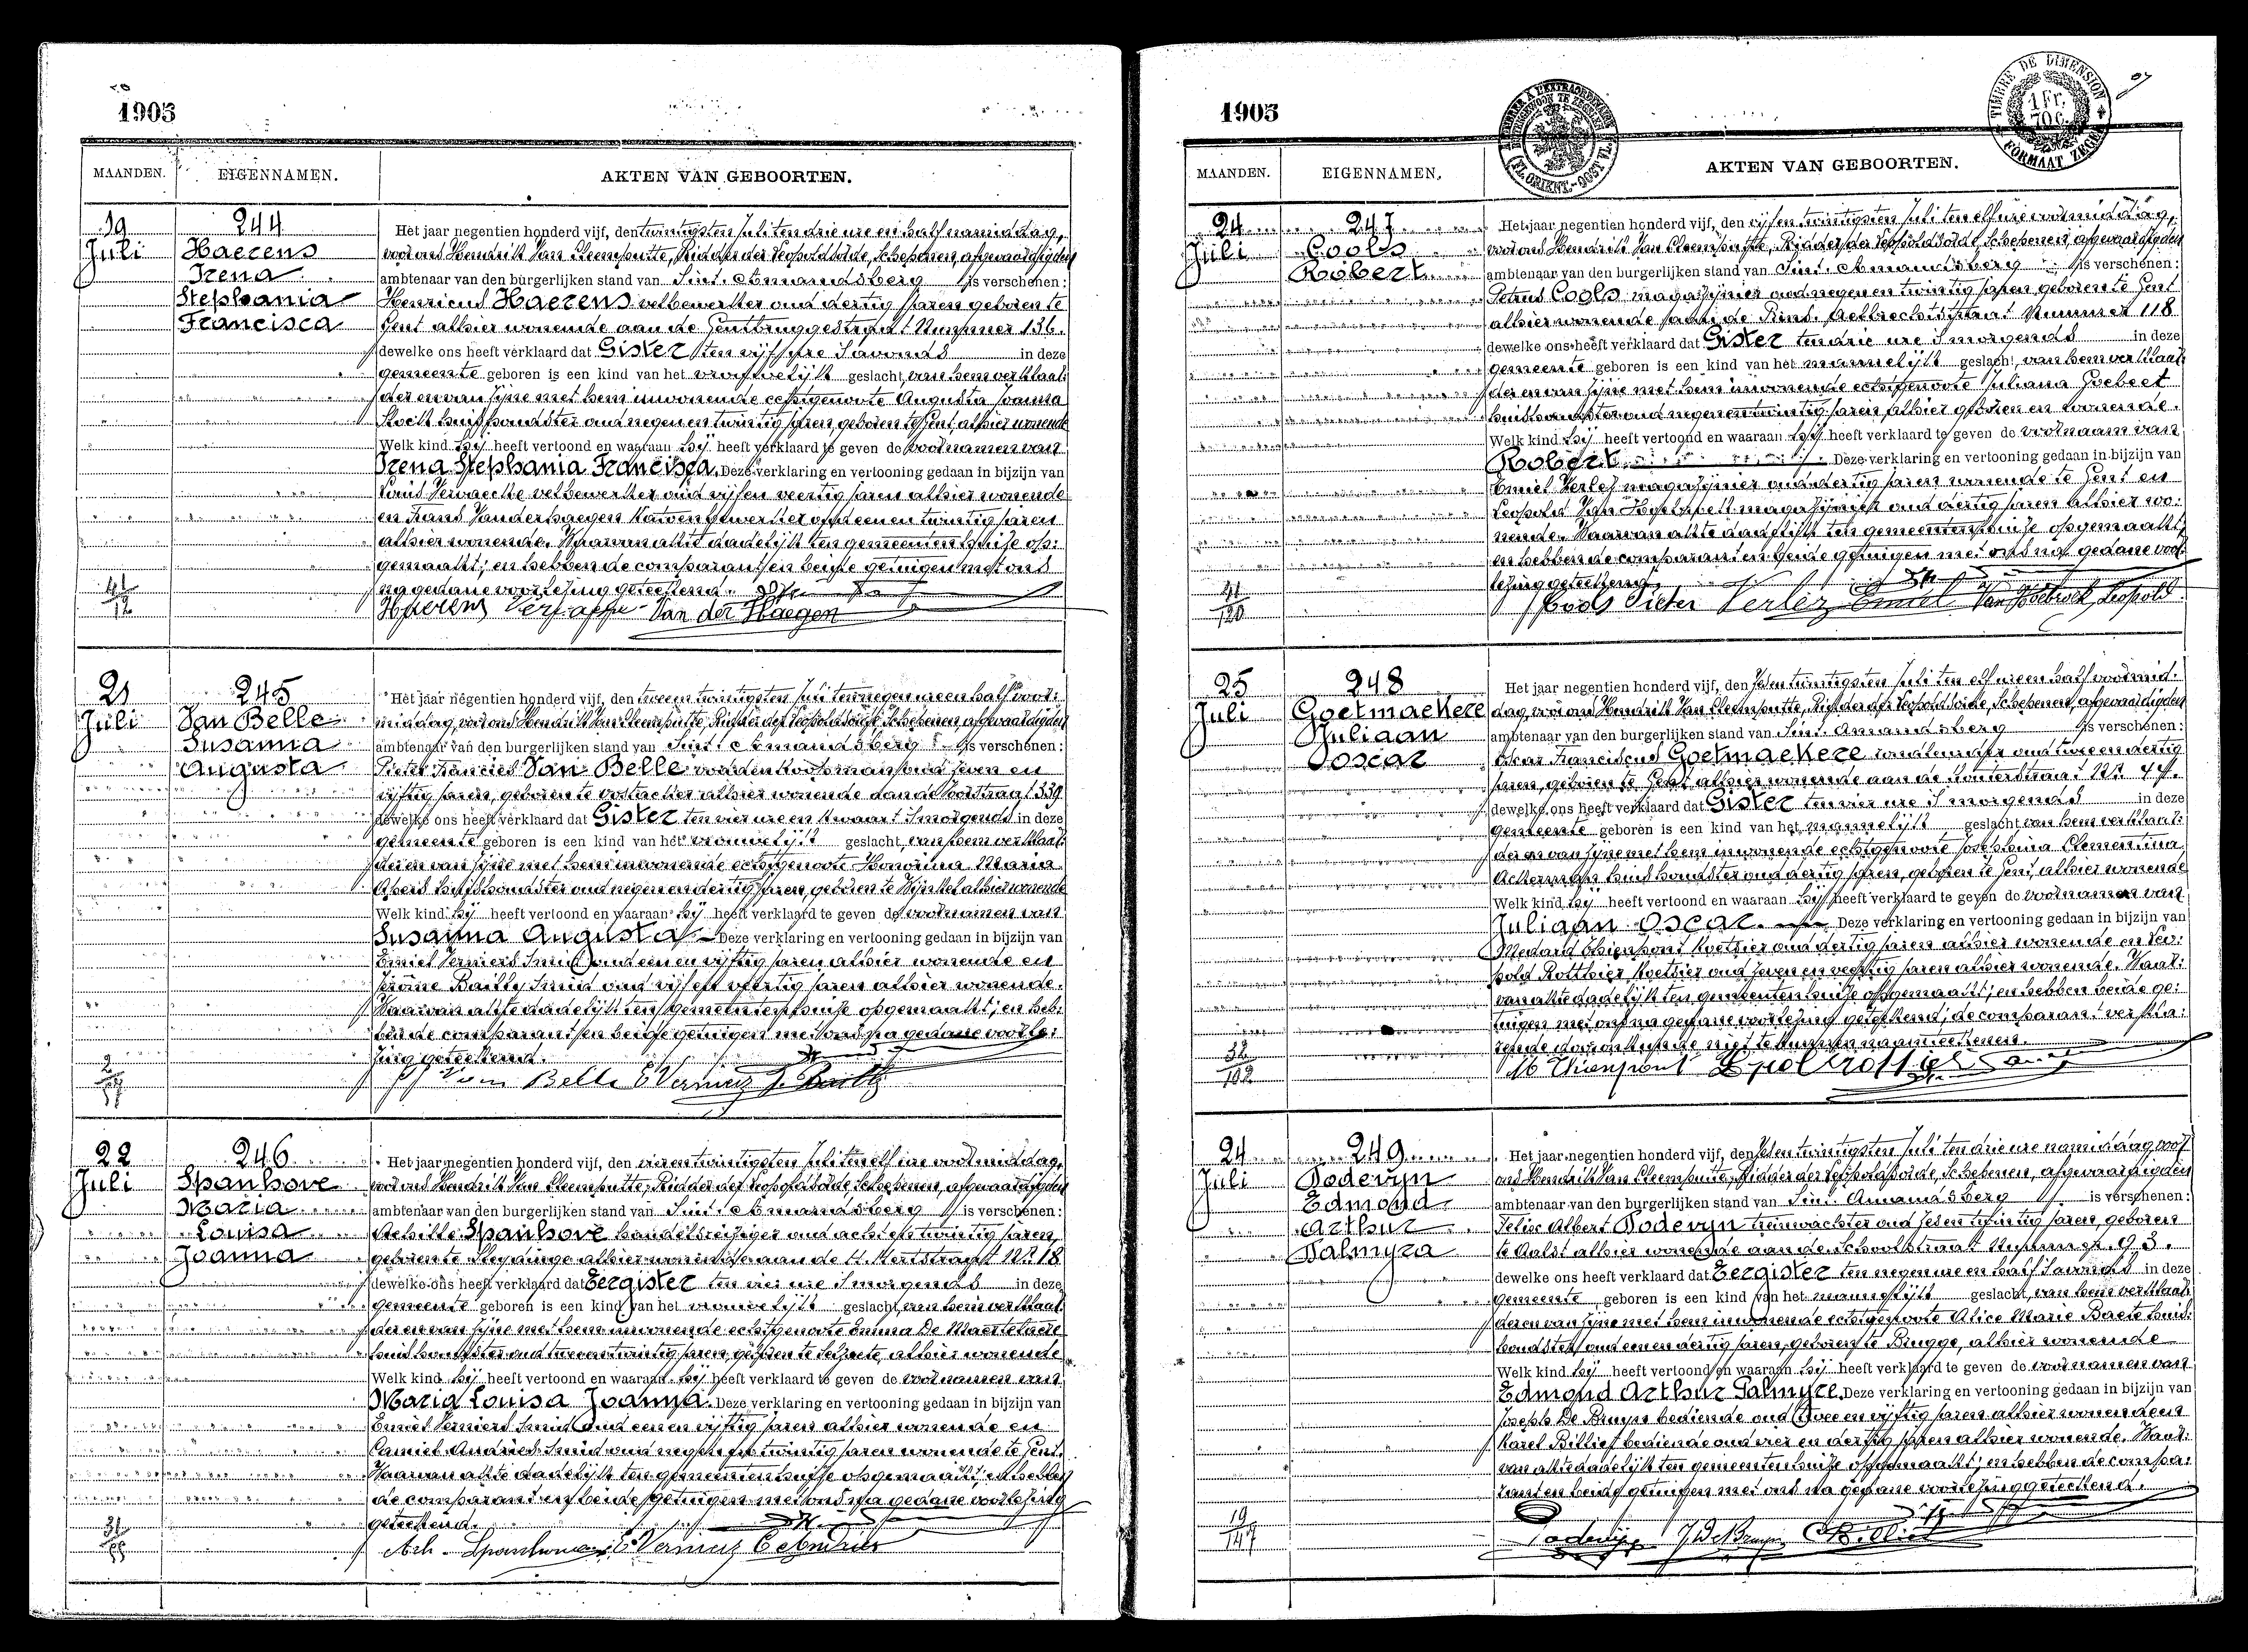 1905
MAANDEN.
EIGENNAMEN.
AKTEN VAN GEBOORTEN.
19
Juli
244
Haerens
Irena
Stephania
Francisca
Het jaar negentien honderd vijf, den twintigsten Juli ten drie ure en half namiddag,
voor ons Hendrik Van Cleemputte, Ridder der Leopoldsorde, Schepenen, afgevaardigden
ambtenaar van den burgerlijken stand van Sint. Amandsberg is verschenen:
Henricus Haerens velbewerker oud dertig jaren geboren te
Gent alhier wonende aan de Gentbruggestraat Nummer 136.
dewelke ons heeft verklaard dat Gister ten vijf ure S'avonds in deze
gemeente geboren is een kind van het vrouwelijk geslacht, van hem verklaar:
der en van zijne met hem inwonende echtgenoote Augusta Joanna
huishoudster oud negen en twintig jaren geboren te Gent, alhier wonende
Welk kind hij heeft vertoond en waaraan hij heeft verklaard te geven de voornamen van
Irena Stephania Francisca. Deze verklaring en vertooning gedaan in bijzijn van
velbewerker oud vijf en veertig jaren alhier wonende
en Frans Vanderhaegen katoenbewerker oud een en twintig jaren
alhier wonende. Waarvan akte dadelijk ten gemeentenhuize op:
gemaakt; en hebben de comparant en beide getuigen met ons
na gedane voorlezing geteekend.
41
12
Haerens Van der Haegen
21
Juli
245
Van Belle
Susanna
Augusta
Het jaar negentien honderd vijf, den tweeen twintigsten Juli ten negen ure en half voor:
middag, voor ons Hendrik Van Cleemputte, Ridder der Leopoldsorde, Schepenen, afgevaardigden
ambtenaar van den burgerlijken stand van Sint. Amandsberg is verschenen:
Pieter Francies Van Belle oud zeven en
vijftig jaren, geboren te Oostacker alhier wonende aan de 339
dewelke ons heeft verklaard dat Gister ten vier ure en kwaart S'morgends in deze
gemeente geboren is een kind van het vrouwelijk geslacht, van hem verklaar:
der en van zijne met hem inwonende echtgenoote Honorina Maria
huishoudster oud negen en dertig jaren, geboren te alhier wonende
Welk kind hij heeft vertoond en waaraan hij heeft verklaard te geven de voornamen van
Susanna Augusta Deze verklaring en vertooning gedaan in bijzijn van
Emiel Verniers Smid oud een en vijftig jaren alhier wonende en
Jérôme Bailly Smid oud vijf en veertig jaren alhier wonende.
Waarvan akte dadelijk ten gemeentenhuize opgemaakt; en heb:
ben de comparant en beide getuigen met ons na gedane voorle:
zing geteekend.
2
57
Van Belle E Verniers J. Bailly
22
Juli
246
Spanhove
Maria
Louisa
Joanna
Het jaar negentien honderd vijf, den vieren twintigsten Juli ten elf ure voormiddag,
voor ons Hendrik Van Cleemputte, Ridder der Leopoldsorde, Schepenen, afgevaardigden
ambtenaar van den burgerlijken stand van Sint. Amandsberg is verschenen:
Achille Spanhove handelsreiziger oud acht en twintig jaren,
geboren te Sleydinge alhier wonende aan de H. Hertstraat Nr. 18
dewelke ons heeft verklaard dat Eergister ten vier ure S'morgends in deze
gemeente geboren is een kind van het vrouwelijk geslacht, van hem verklaar:
der en van zijne met hem inwonende echtgenoote Emma De Maertelaere
huishoudster oud tween en twintig jaren, geboren te Selzaete, alhier wonende
Welk kind hij heeft vertoond en waaraan hij heeft verklaard te geven de voornamen van
Maria Louisa Joanna. Deze verklaring en vertooning gedaan in bijzijn van
Emiel Verniers Smid oud een en vijftig jaren alhier wonende en
Camiel Andries Smid oud negen en twintig jaren wonende te Gent.
Waarvan akte dadelijk ten gemeentenhuize opgemaakt; en hebben
de comparant en beide getuigen met ons na gedane voorlezing
geteekend.
31
Ach. Spanhove E Verniers C Andries
1905
TIMBRE DE DIMENSION
1 Fr.
70 C.
FORMAAT ZEGEL
MAANDEN.
EIGENNAMEN.
AKTEN VAN GEBOORTEN.
24
Juli
247
Cools
Robert
Het jaar negentien honderd vijf, den vijfen twintigsten Juli ten elf ure voormiddag,
voor ons Hendrik Van Cleemputte, Ridder der Leopoldsorde, Schepenen, afgevaardigden
ambtenaar van den burgerlijken stand van Sint. Amandsberg is verschenen:
Petrus Cools magazijnier oud negen en twintig jaren geboren te Gent
alhier wonende aan de Nummer 118
dewelke ons heeft verklaard dat Gister ten drie ure S'morgends in deze
gemeente geboren is een kind van het mannelijk geslacht, van hem verklaar:
der en van zijne met hem inwonende echtgenoote Juliana Goebert
huishoudster oud negen en twintig jaren alhier geboren en wonende.
Welk kind hij heeft vertoond en waaraan hij heeft verklaard te geven de voornaam van
Robert Deze verklaring en vertooning gedaan in bijzijn van
Emiel Verlez magazijnier oud dertig jaren wonende te Gent en
Leopold Van magazijnier oud dertig jaren alhier wo:
nende. Waarvan akte dadelijk ten gemeentenhuize opgemaakt;
en hebben de comparant en beide getuigen met ons na gedane voor
lezing geteekend.
41
120
Cools Pieter Verlez Emiel Leopold
25
Juli
248
Goetmaekere
Juliaan
Oscar
Het jaar negentien honderd vijf, den zesen twintigsten Juli ten elf ure en half voormid:
dag, voor ons Hendrik Van Cleemputte, Ridder der Leopoldsorde, Schepenen, afgevaardigden
ambtenaar van den burgerlijken stand van Sint. Amandsberg is verschenen:
Oscar Franciscus Goetmaekere oud twee en dertig
jaren, geboren te Gent alhier wonende aan de
dewelke ons heeft verklaard dat Gister ten vier ure S'morgends in deze
gemeente geboren is een kind van het mannelijk geslacht van hem verklaar:
der en van zijne met hem inwonende echtgenoote Josephina Clementina
Ackerman huishoudster oud dertig jaren, geboren te Gent, alhier wonende
Welk kind hij heeft vertoond en waaraan hij heeft verklaard te geven de voornamen van
Juliaan Oscar. Deze verklaring en vertooning gedaan in bijzijn van
Medard Thienpont Koetsier oud dertig jaren alhier wonende en Leo:
pold Rotthier Koetsier oud zeven en veertig jaren alhier wonende. Waar:
van akte dadelijk ten gemeentenhuize opgemaakt; en hebben beide ge:
tuigen met ons na gedane voorlezing geteekend; de comparant verkla:
rende door onkunde niet te kunnen naamteekenen.
32
102
M Thienpont
24
Juli
249
Podevyn
Edmond
Arthur
Palmyra
Het jaar negentien honderd vijf, den zesen twintigsten Juli ten drie ure namiddag voor
ons Hendrik Van Cleemputte, Ridder der Leopoldsorde, Schepenen, afgevaardigden
ambtenaar van den burgerlijken stand van Sint. Amandsberg is verschenen:
Felix Albert Podevyn treinwachter oud zesen twintig jaren, geboren
te Aalst alhier wonende aan de Schoolstraat Nummer 93.
dewelke ons heeft verklaard dat Eergister ten negen ure en half S'avonds in deze
gemeente geboren is een kind van het mannelijk geslacht, van hem verklaar:
der en van zijne met hem inwonende echtgenoote Alice Marie Baete huis:
houdster oud een en dertig jaren, geboren te Brugge, alhier wonende
Welk kind hij heeft vertoond en waaraan hij heeft verklaard te geven de voornamen van
Edmond Arthur Palmyre. Deze verklaring en vertooning gedaan in bijzijn van
Joseph De Bruyn bediende oud twee en vijftig jaren alhier wonende en
Karel Billiet bediende oud vier en dertig jaren alhier wonende. Waar:
van akte dadelijk ten gemeentenhuize opgemaakt; en hebben de compa:
rant en beide getuigen met ons na gedane voorlezing geteekend.
19
147
Podevijn J De Bruyn C Billiet